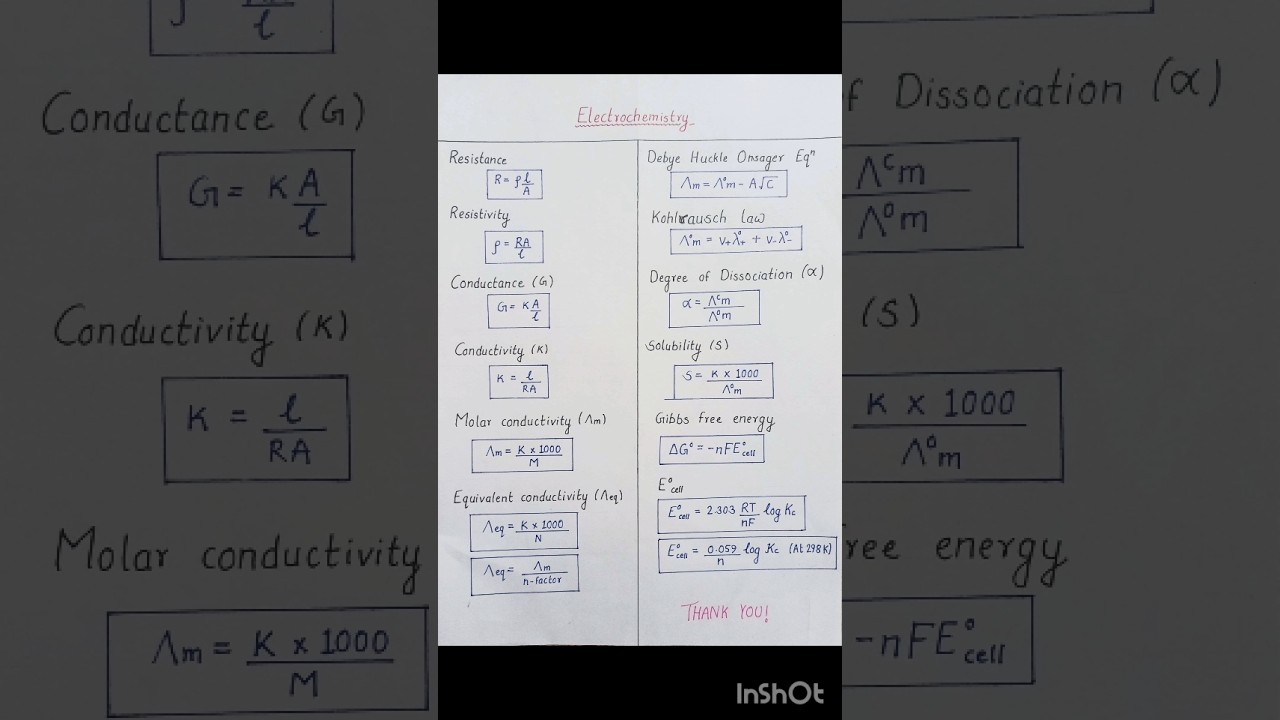 Electrochemistry
Resistance
R = ρ l/A
Resistivity
ρ = RA/l
Conductance (G)
G = K A/l
Conductivity (K)
K = l/RA
Molar conductivity (Λm)
Λm = K x 1000/M
Equivalent conductivity (Λeq)
Λeq = K x 1000/N
Λeq = Λm/n-factor
Debye Huckle Onsager Eqⁿ
Λm = Λ°m - A√C
Kohlrausch law
Λ°m = ν+λ°+ + ν-λ°-
Degree of Dissociation (α)
α = Λᶜm/Λ°m
Solubility (S)
S = K x 1000/Λ°m
Gibbs free energy
ΔG° = -nFE°cell
E°cell
E°cell = 2.303 RT/nF log Kc
E°cell = 0.059/n log Kc (At 298K)
THANK YOU!
l
Conductance (G)
G = K A/l
Conductivity (K)
K = l/RA
Molar conductivity
Λm = K x 1000/M
f Dissociation (α)
Λᶜm/Λ°m
(S)
K x 1000/Λ°m
free energy
-nFE°cell
InShOt